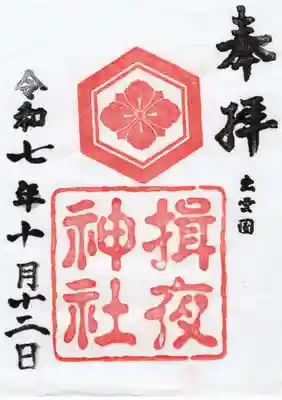 奉拝
出雲国
揖夜
神社
令和七年十月十二日